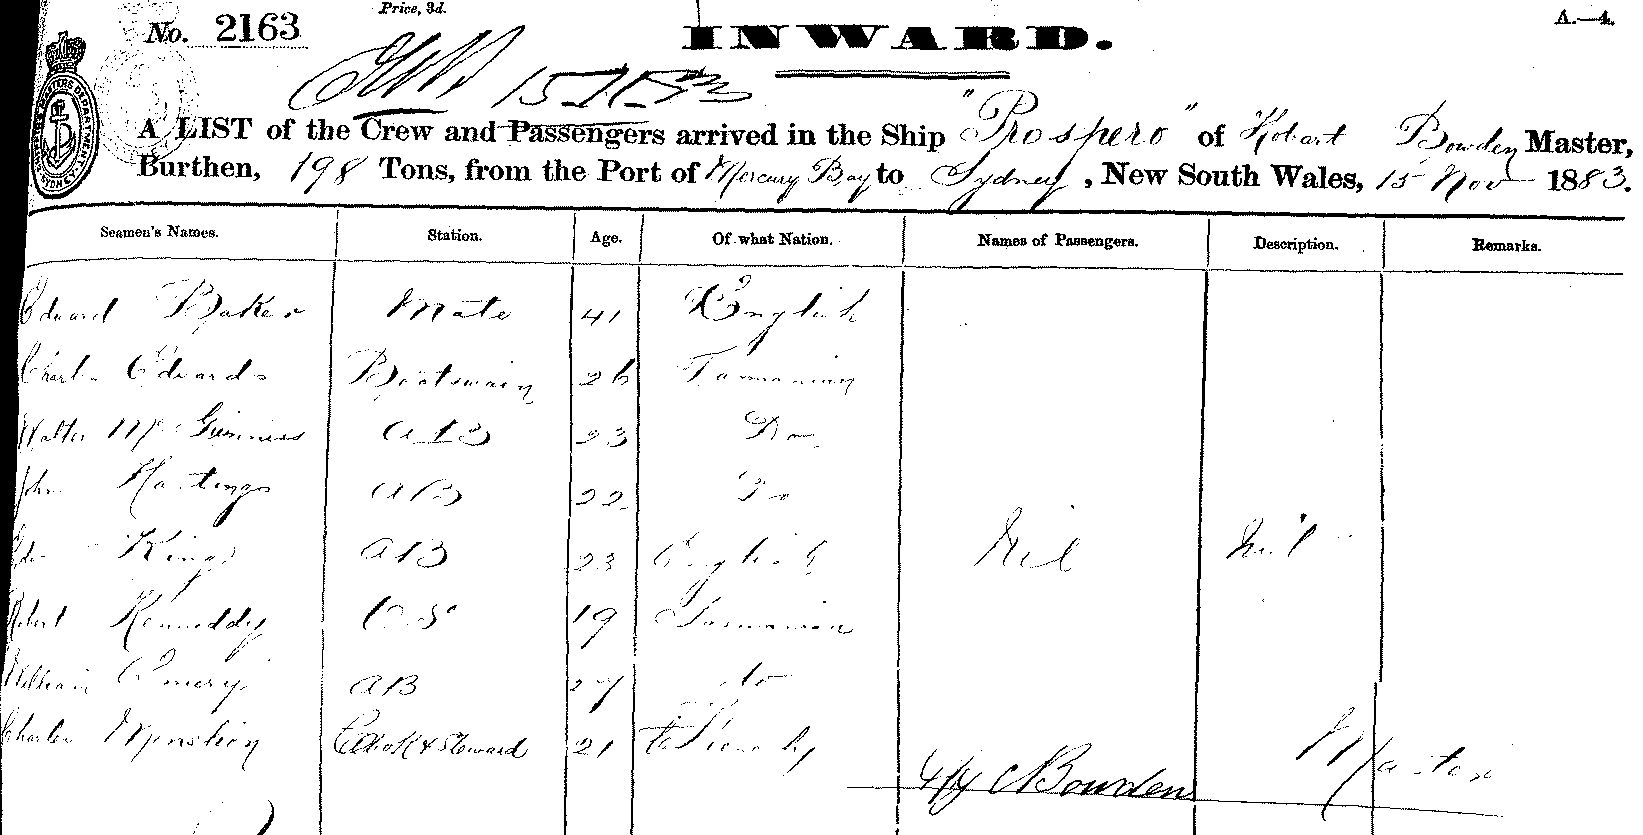 Price, 3d.
No. 2163 INWARD. A.—4.
A LIST of the Crew and Passengers arrived in the Ship "Prospero" of Robart Bowden Master,
Burthen, 198 Tons, from the Port of Mercury Bay to Sydney, New South Wales, 15 Nov 1883.
Seamen's Names. Station. Age. Of what Nation. Names of Passengers. Description. Remarks.
Edward Baker Mate 41 English
Charls Edwards Boatswain 26 Tasmanian
Walter McGuinness AB 23 Do
John Hastings AB 22 Do
King AB 23 English Nil Nil
Robert Kenneddy O.S 19 Tasmanian
William Emery AB 27 do
Charles Cook & Steward 21
Bowden Master